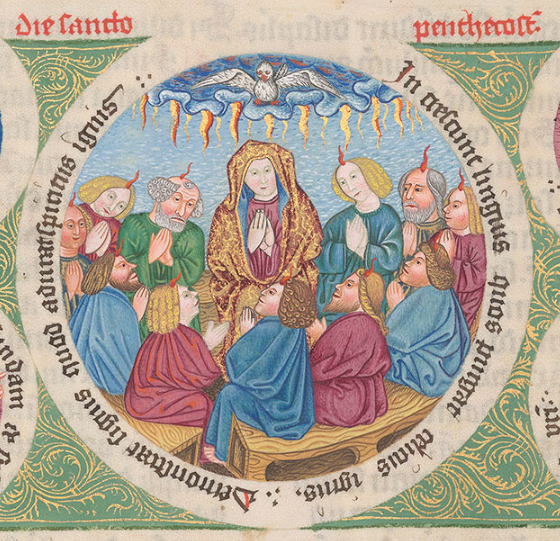 die sancto
penthecost:
In crescunt linguis quos purgat ignis.
Demonstrat lignis quod adurat spiritus ignis